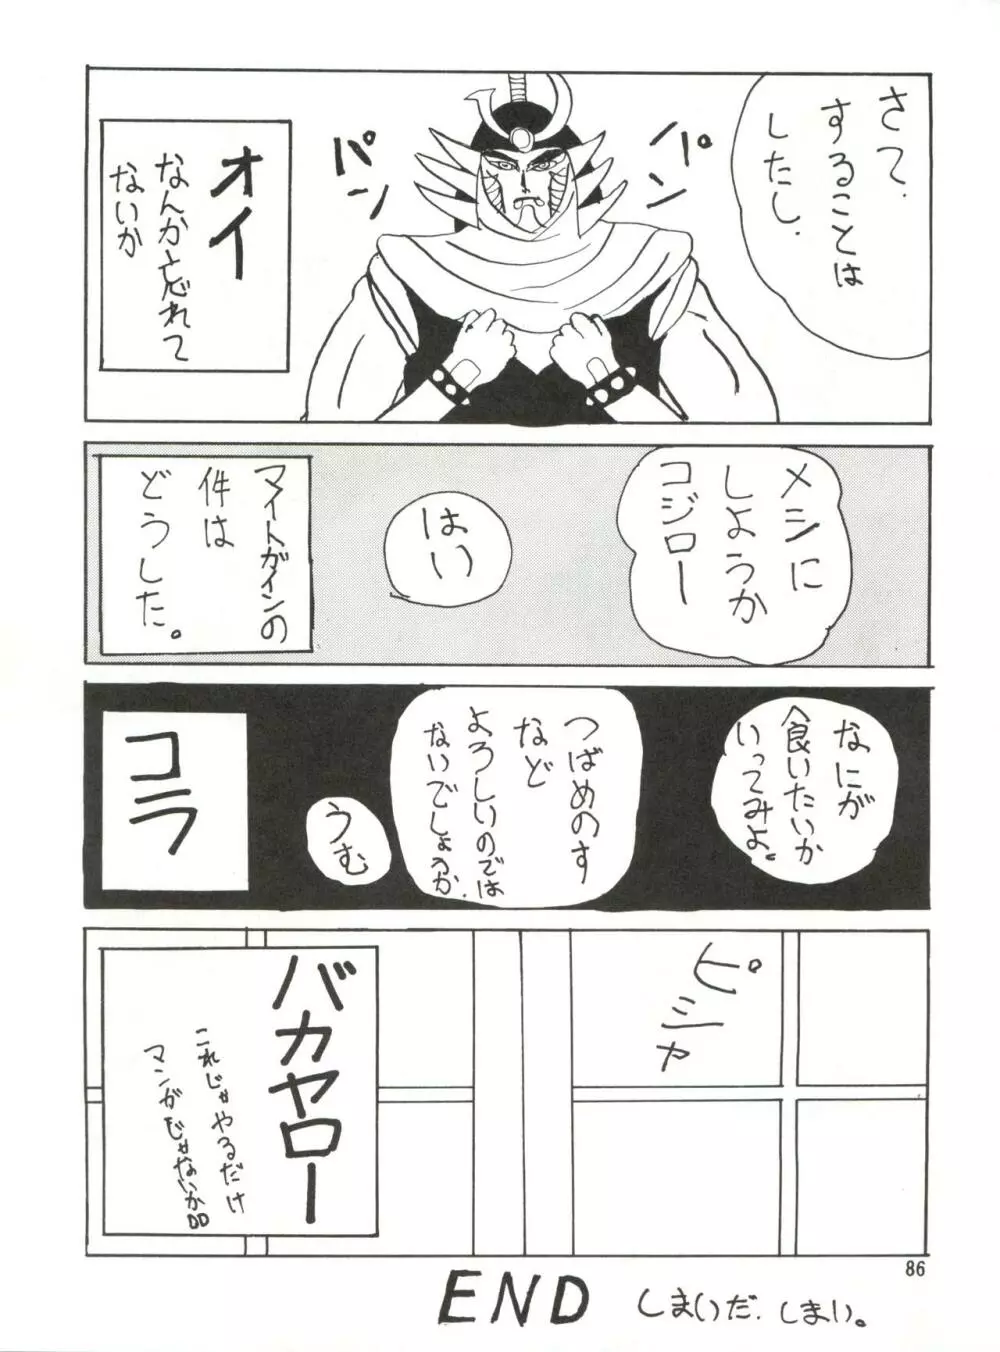 さて、
することは
したし、
パン
パン
オイ
なんか忘れて
ないか
メシに
しようか
コジロー
はい
マイトガインの
件は
どうした。
なにが
食いたいか
いってみよ。
つばめのす
など
よろしいのでは
ないでしょうか
うむ
コラ
ピシャ
バカヤロー
これじゃやるだけ
マンガじゃないか
86
END
しまいだ、しまい。